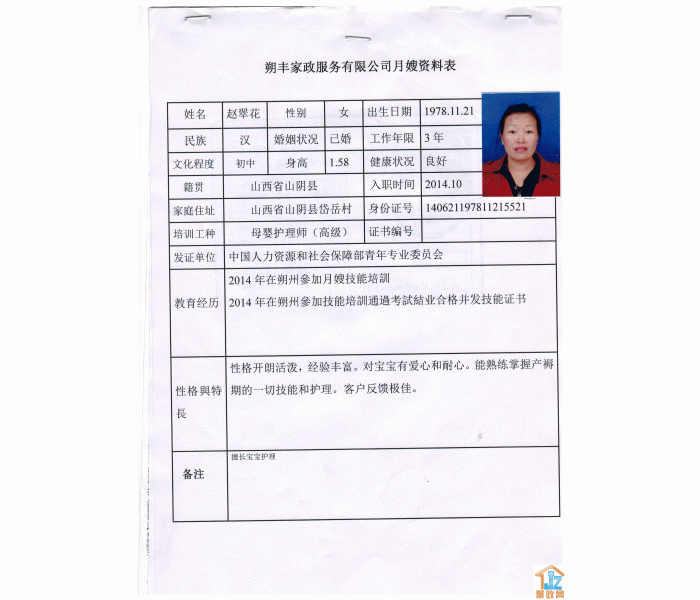 朔丰家政服务有限公司月嫂资料表
姓名 赵翠花 性别 女 出生日期 1978.11.21
民族 汉 婚姻状况 已婚 工作年限 3 年
文化程度 初中 身高 1.58 健康状况 良好
籍贯 山西省山阴县 入职时间 2014.10
家庭住址 山西省山阴县岱岳村 身份证号 140621197811215521
培训工种 母婴护理师（高级） 证书编号
发证单位 中国人力资源和社会保障部青年专业委员会
教育经历 2014 年在朔州參加月嫂技能培訓
2014 年在朔州參加技能培訓通過考試結业合格并发技能证书
性格與特長 性格开朗活泼，经验丰富。对宝宝有爱心和耐心。能熟练掌握产褥
期的一切技能和护理。客户反馈极佳。
备注 擅长宝宝护理
JZ
聚政网